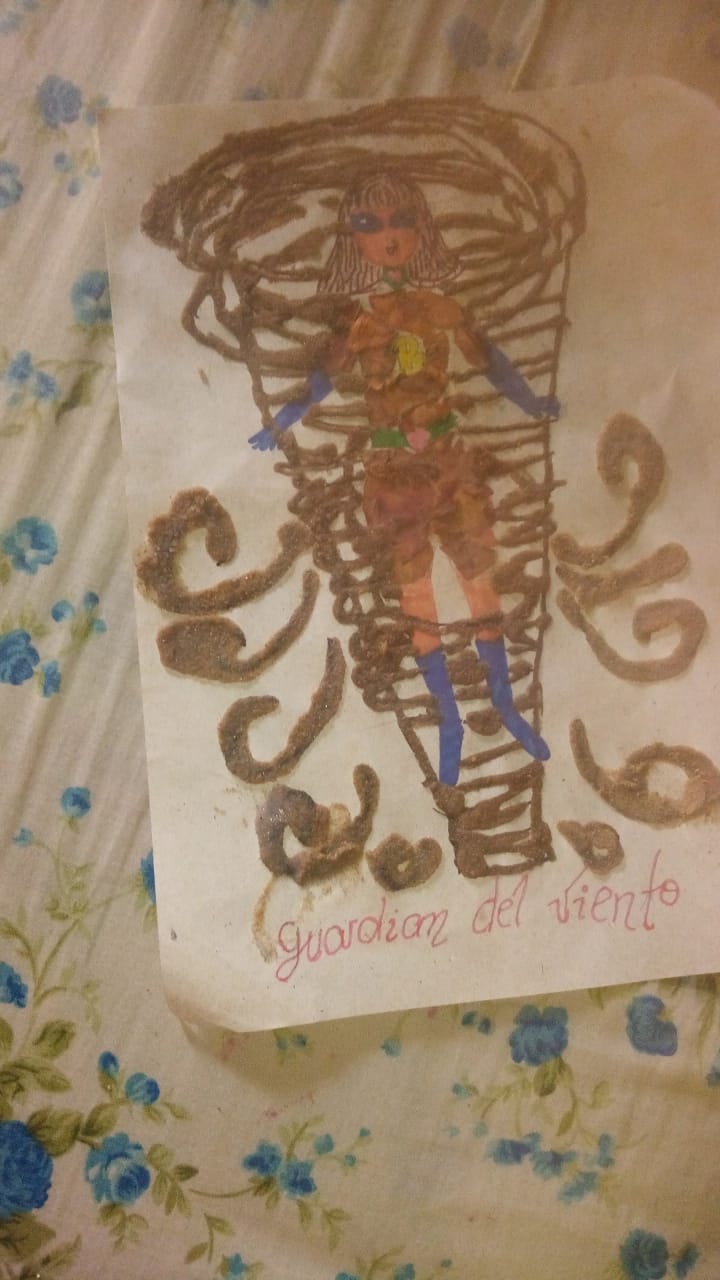 guardian del viento